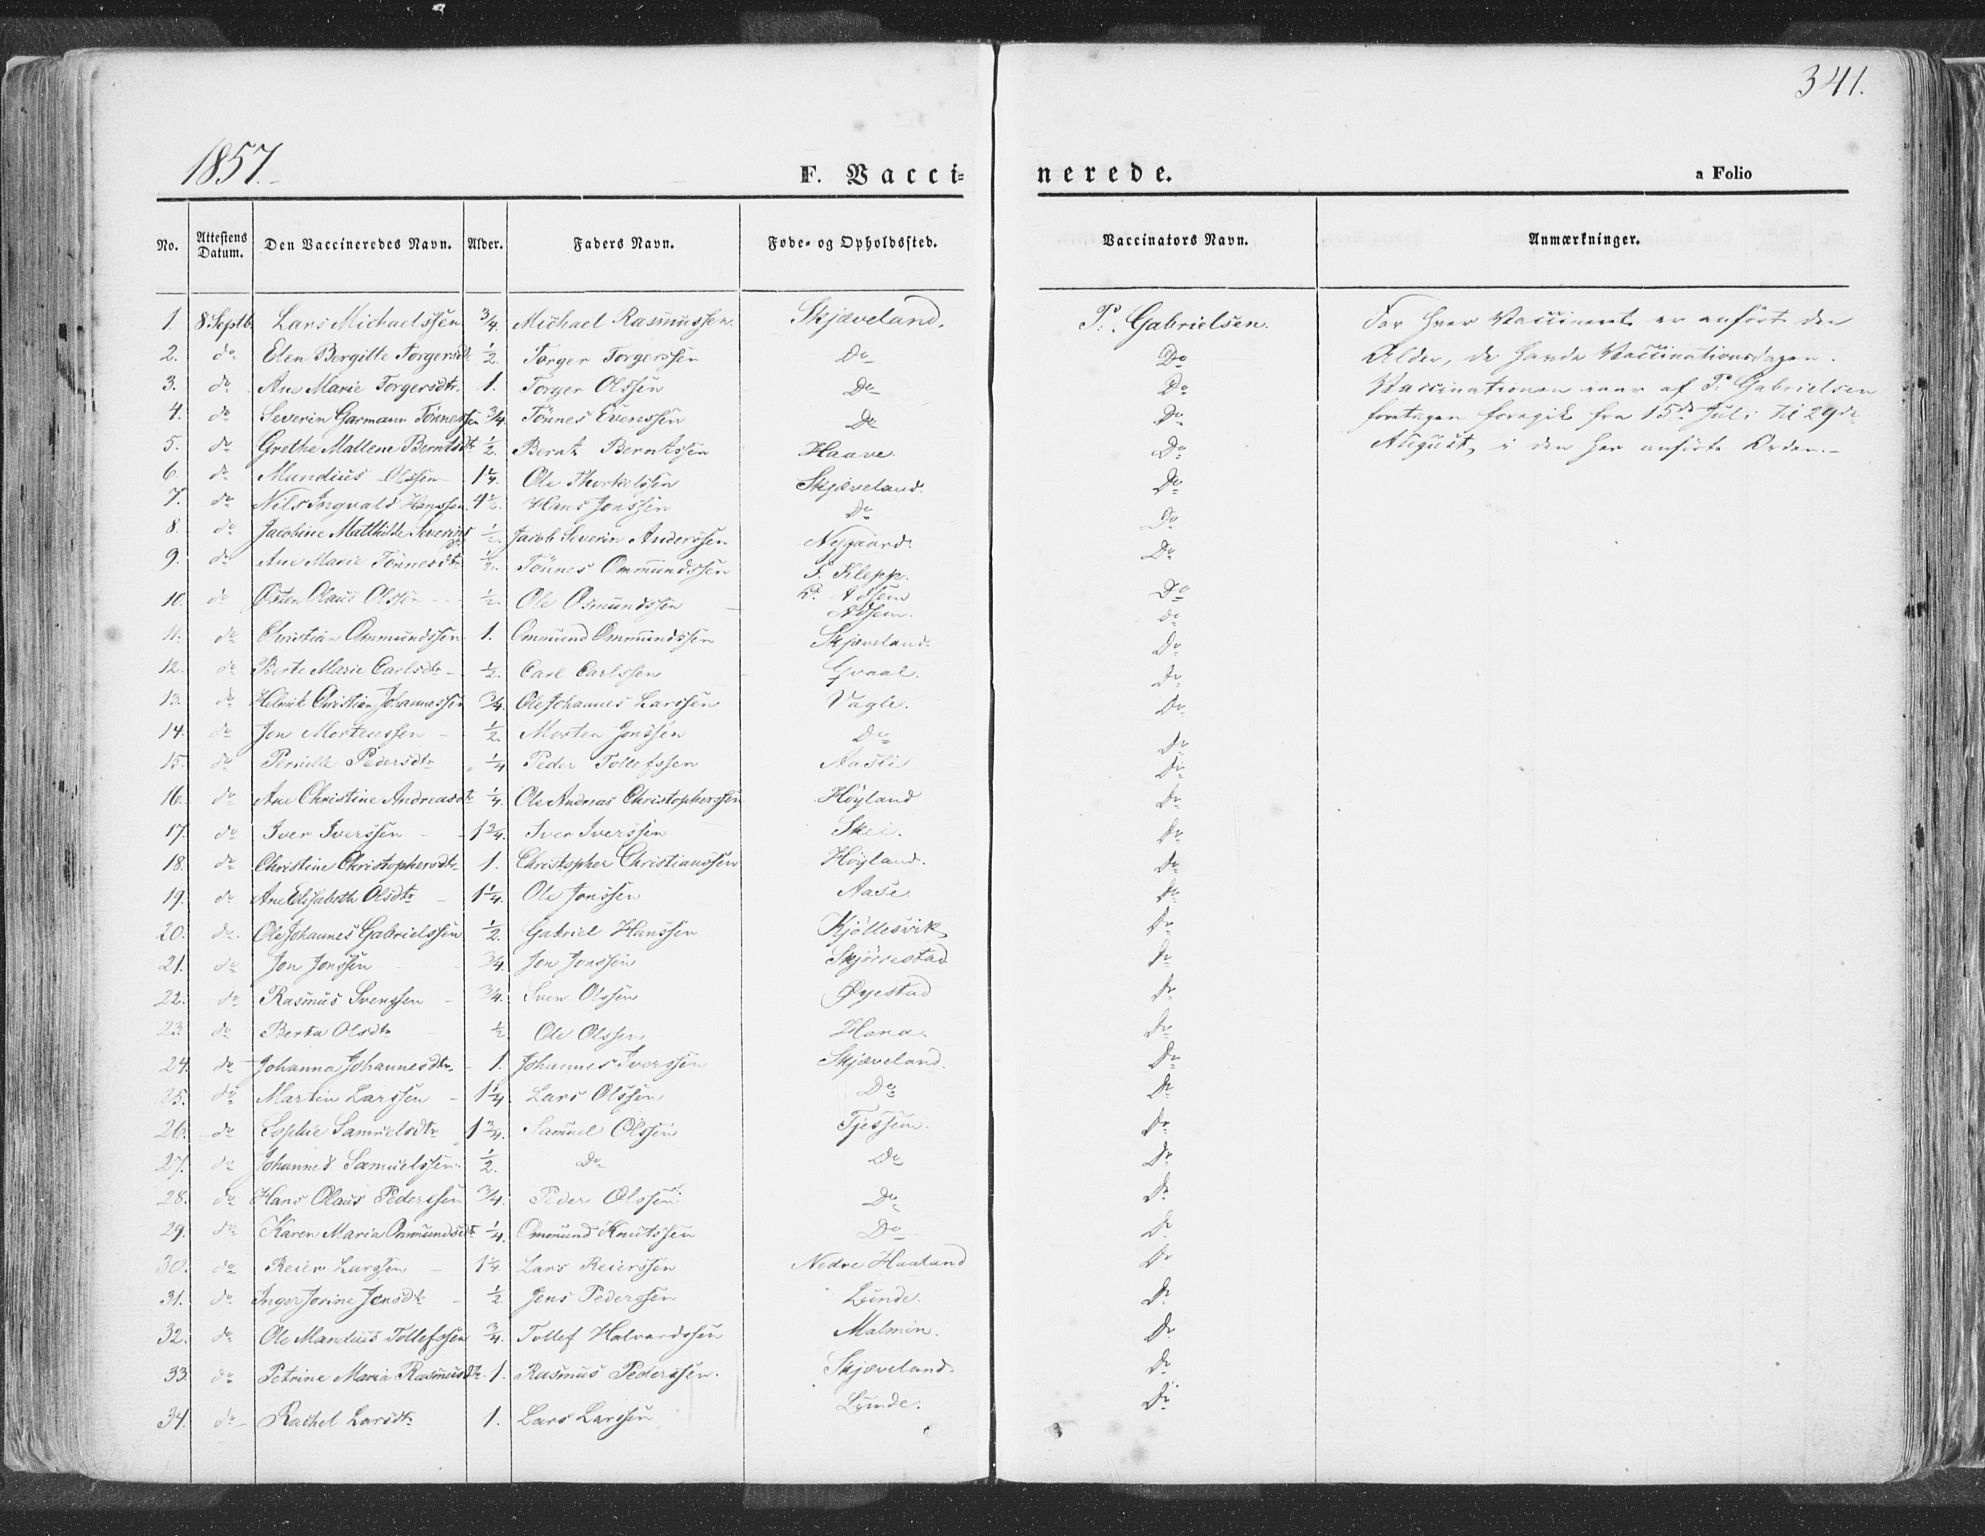 341.
1857.
F. Vaccinerede. a Folio
No. Attestens Datum. Den Vaccineredes Navn. Alder. Faders Navn. Føde- og Opholdssted. Vaccinators Navn. Anmærkninger.
1. 8 Septb. Lars Michaelssen 3/4. Michael Rasmussen. Skjæveland. P. Gabrielsen. For hver Vaccineret er anført den
2. do Elen Bergitte Torgersdt 1/2. Torger Torgerssen Do Do Alder, de havde Vaccinationsdagen.
3. do Ane Marie Torgersdtr. 1. Torger Olssen Do Do Vaccinationen som af P. Gabrielsen
4. do Severin Garmann Tönnessen 3/4. Tönnes Evenssen Do Do foretagen foregik fra 15de Juli til 29de
5. do Grethe Mallene Berntsdt 1/2. Bernt Berntssen Haave. Do August i den her anførte Orden.
6. do Mandius Olssen 1 1/4. Ole Thorkelssen Skjæveland. Do
7. do Nils Ingvald Hanssen. 4 1/2. Hans Jonssen Do Do
8. do Jacobine Mathilde Severinsdt 1/2. Jacob Severin Anderssen Nygaard. Do
9. do Ane Marie Tönnesdtr 1/2. Tönnes Ommundssen Klepp. Do
10. do Østen Olaus Olssen 1/2. Ole Osmundssen Do do
11. do Christian Ommundssen 1. Ommund Ommundssen Skjæveland. Do
12. do Berte Marie Carlsdtr 1/2. Carl Carlssen Graal. Do
13. do Helmik Christian Johannessen 3/4. Ole Johannes Larssen Vagle. Do
14. do Jon Mortenssen 1/2. Morten Jonssen Do Do
15. do Pernille Pedersdtr 1/4 Peder Tollefssen Aasli Do
16. do Ane Christine Andreasdt 1/4. Ole Andreas Christopherssen Høyland Do
17. do Iver Iverssen 1 3/4. Iver Iverssen Skei. Do
18. do Christine Christophersdtr 1. Christopher Christianssen Høyland. Do
19. do Ane Elisabeth Olsdtr 1 1/4. Ole Jonssen Aase. Do
20. do Ole Johannes Gabrielssen 1/2. Gabriel Hanssen Kjöllesvik Do
21. do Jon Jonssen 3/4. Jon Jonssen Skjörrestad Do
22. do Rasmus Svenssen 3/4. Sven Olssen Øyestad Do
23. do Berta Olsdtr 1/2 Ole Olssen Hana. Do
24. do Johanna Johannesdtr. 1. Johannes Iverssen Skjæveland. Do
25. do Martin Larssen 1 1/4 Lars Olssen Do Do
26. do Sophie Samuelsdtr 1 3/4. Samuel Olssen Tjessem. Do
27. do Johannes Samuelssen. 1/2. Do Do Do
28. do Hans Olaus Pederssen 3/4. Peder Olssen Do Do
29. do Karen Maria Ommundsdt 1/4. Ommund Knutssen Do Do
30. do Reier Larssen 1 1/4. Lars Reierssen Nedre Haaland Do
31. do Inger Josine Jensdtr 1/2. Jens Pederssen Lunde. Do
32. do Ole Mandius Tollefssen 3/4. Tollef Halvardssen Malmin. Do
33. do Petrine Maria Rasmusdtr. 1. Rasmus Pederssen. Skjæveland. Do
34. do Rachel Larsdtr 1. Lars Larssen Lunde. Do